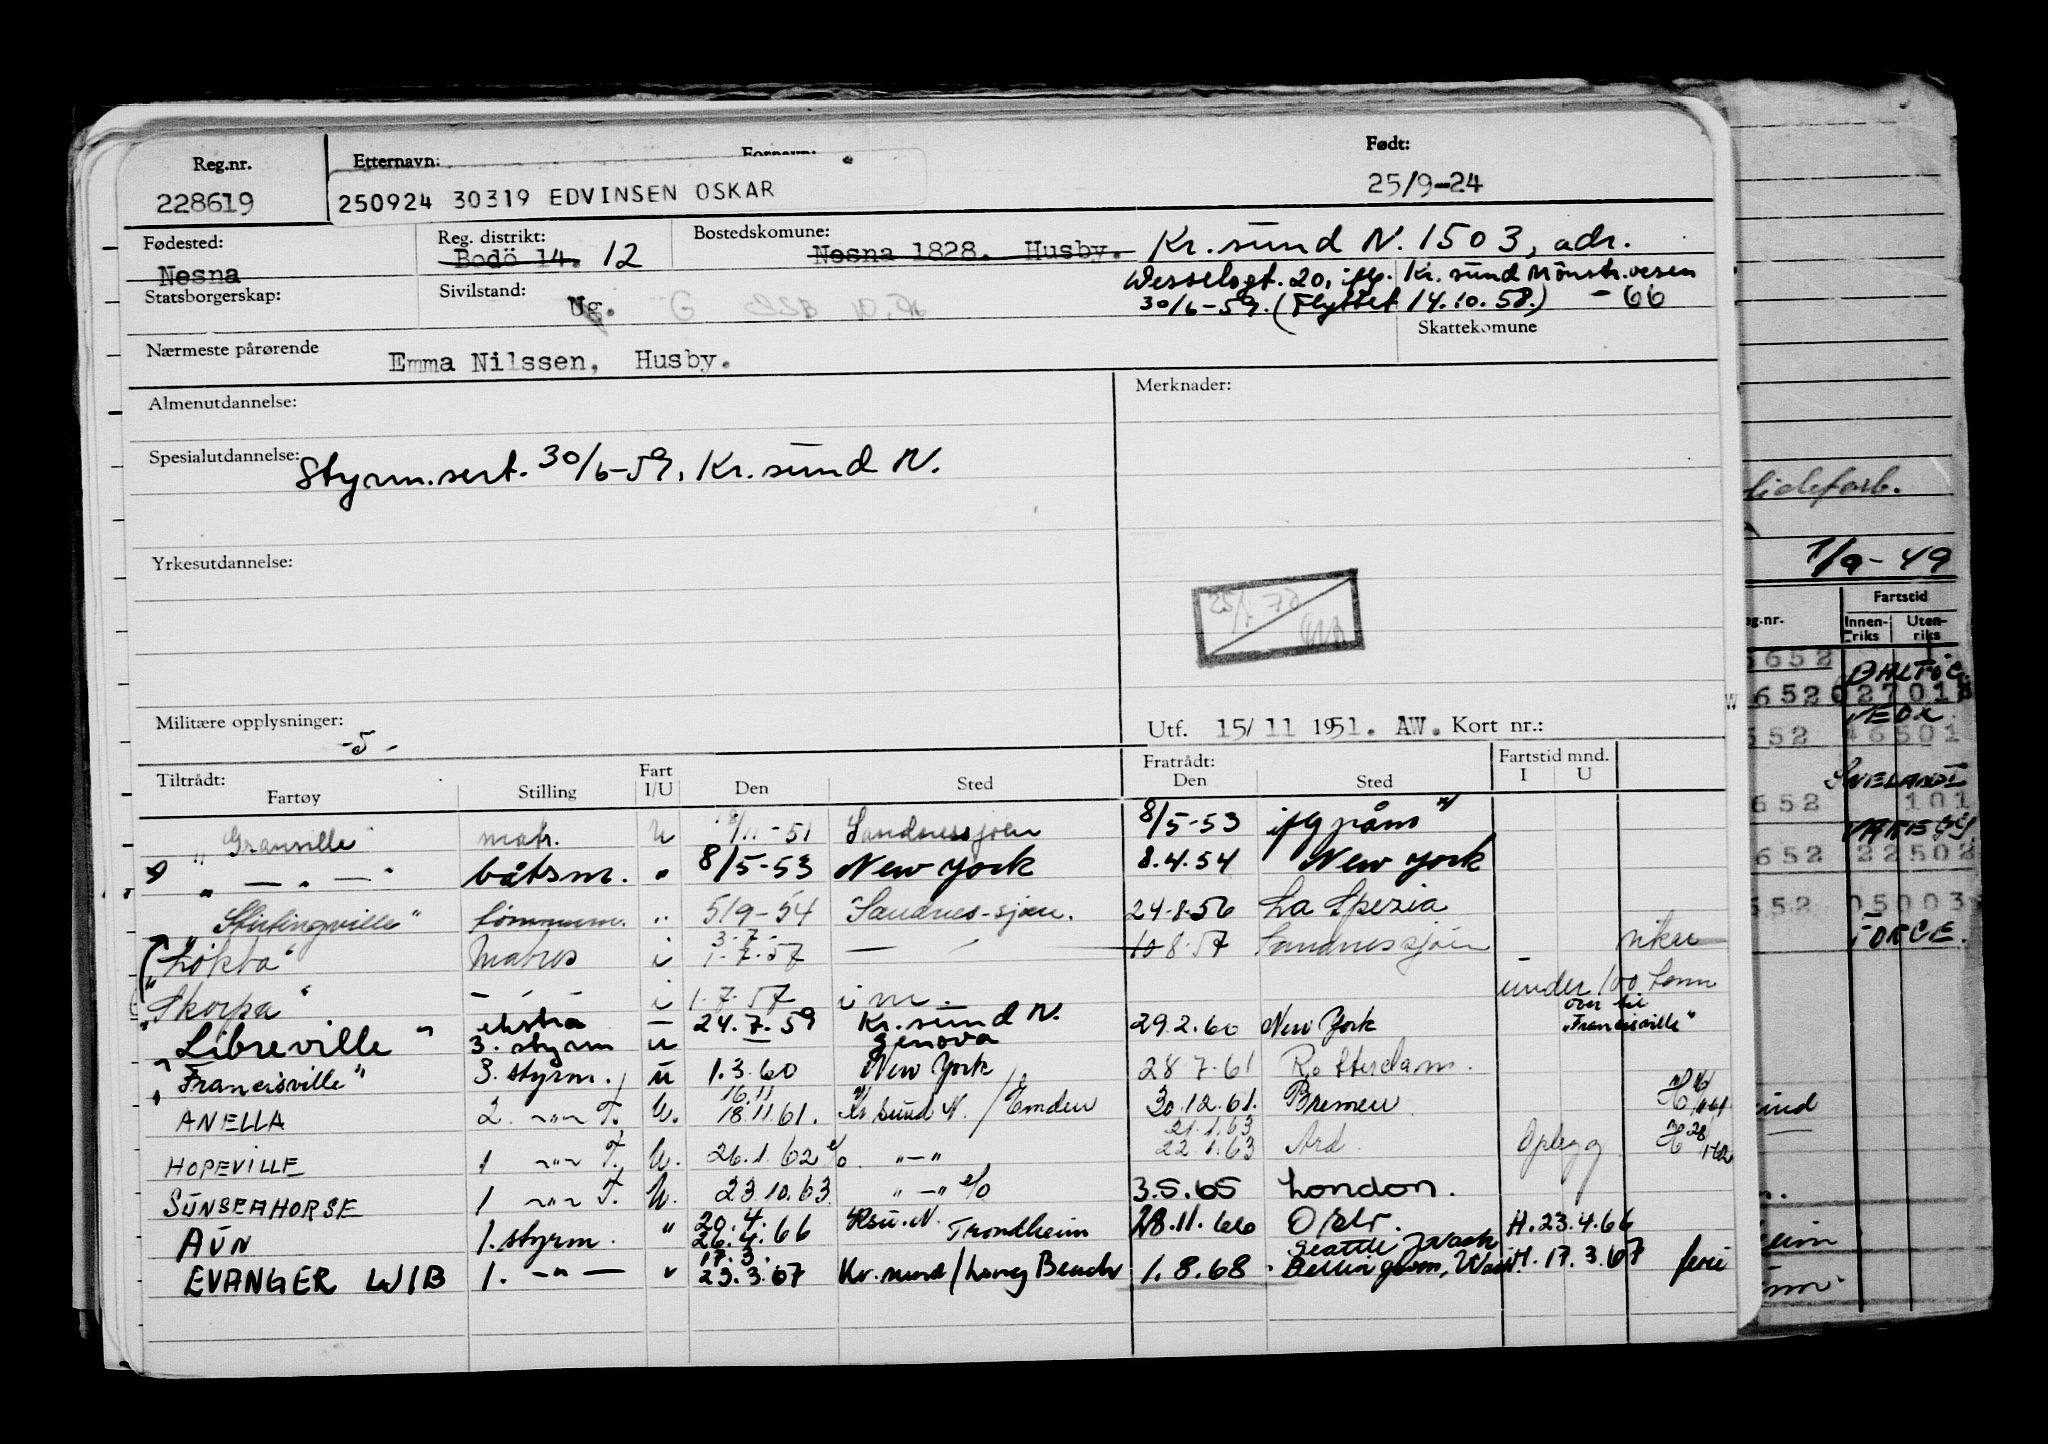 Reg.nr. Etternavn: Fornavn: Født:
228619 250924 30319 EDVINSEN OSKAR 25/9-24
Fødested: Reg. distrikt: Bostedskomune:
Nesna Bodö 14. 12 Nesna 1828. Husby. Kr. sund N. 1503, adr.
Wesselsgt. 20, iflg. Kr. sund Mönstr.vesen
30/6-59. (Flyttet 14.10.58.) - 66
Statsborgerskap: Sivilstand: Ug. G
Skattekomune
Nærmeste pårørende Emma Nilssen, Husby.
Almenutdannelse: Merknader:
Spesialutdannelse: Styrm.sert. 30/6-59, Kr. sund N.
Yrkesutdannelse:
25/1 78
Militære opplysninger: -5- Utf. 15/11 1951. AW. Kort nr.:
Tiltrådt: Fart Fratrådt: Fartstid mnd.
Fartøy Stilling I/U Den Sted Den Sted I U
"Granville" matr. U /11-51 Sandnessjøen 8/5-53
" — " — " båtsm. " 8/5-53 New York 8.4.54 New York
"Stirlingville" tömmerm. " 5/9-54 Sandnes-sjøen. 24-8-56 La Spezia
3.7.-
"Lökta" Matros i 1.7.57 — 10 8.57 Sandnessjöen
"Skorpa" — i 1.7.57 i m. under 100 tonn
ekstra — 24.7.59 Kr. sund N. over til
"Libreville" 3. styrm u — Genova 29.2.60 New York "Francisville"
"Francisville" 3. styrm. u 1.3.60 New York 28.7.61 Rotterdam.
16.11
ANELLA 2. -"- T. U. 18.11.61. Kr sund N. / Emden 30.12.61. Bremen
21.1.63
HOPEVILLE 1 -"- T. U. 26.1.62 "-" 22 1.63 Opplegg
SUNSEAHORSE 1 -"- T. U. 23.10.63 "-" 3.5.65 London.
20.4.
AUN 1. styrm. " 26.4.66 Ksu. N. Trondheim 28.11.66 H. 23.4.66
17.3. Seattle
EVANGER WIB 1. -"- " 23.3.67 Kr. sund / Long Beach 1.8.68. H. 17.3.67 ferie
1/9-49
Fartstid
Innen-riks Uten-riks
5652 BALTIC
652 02701
652 46501
652 101
652 22502
652 05003
TORGE.